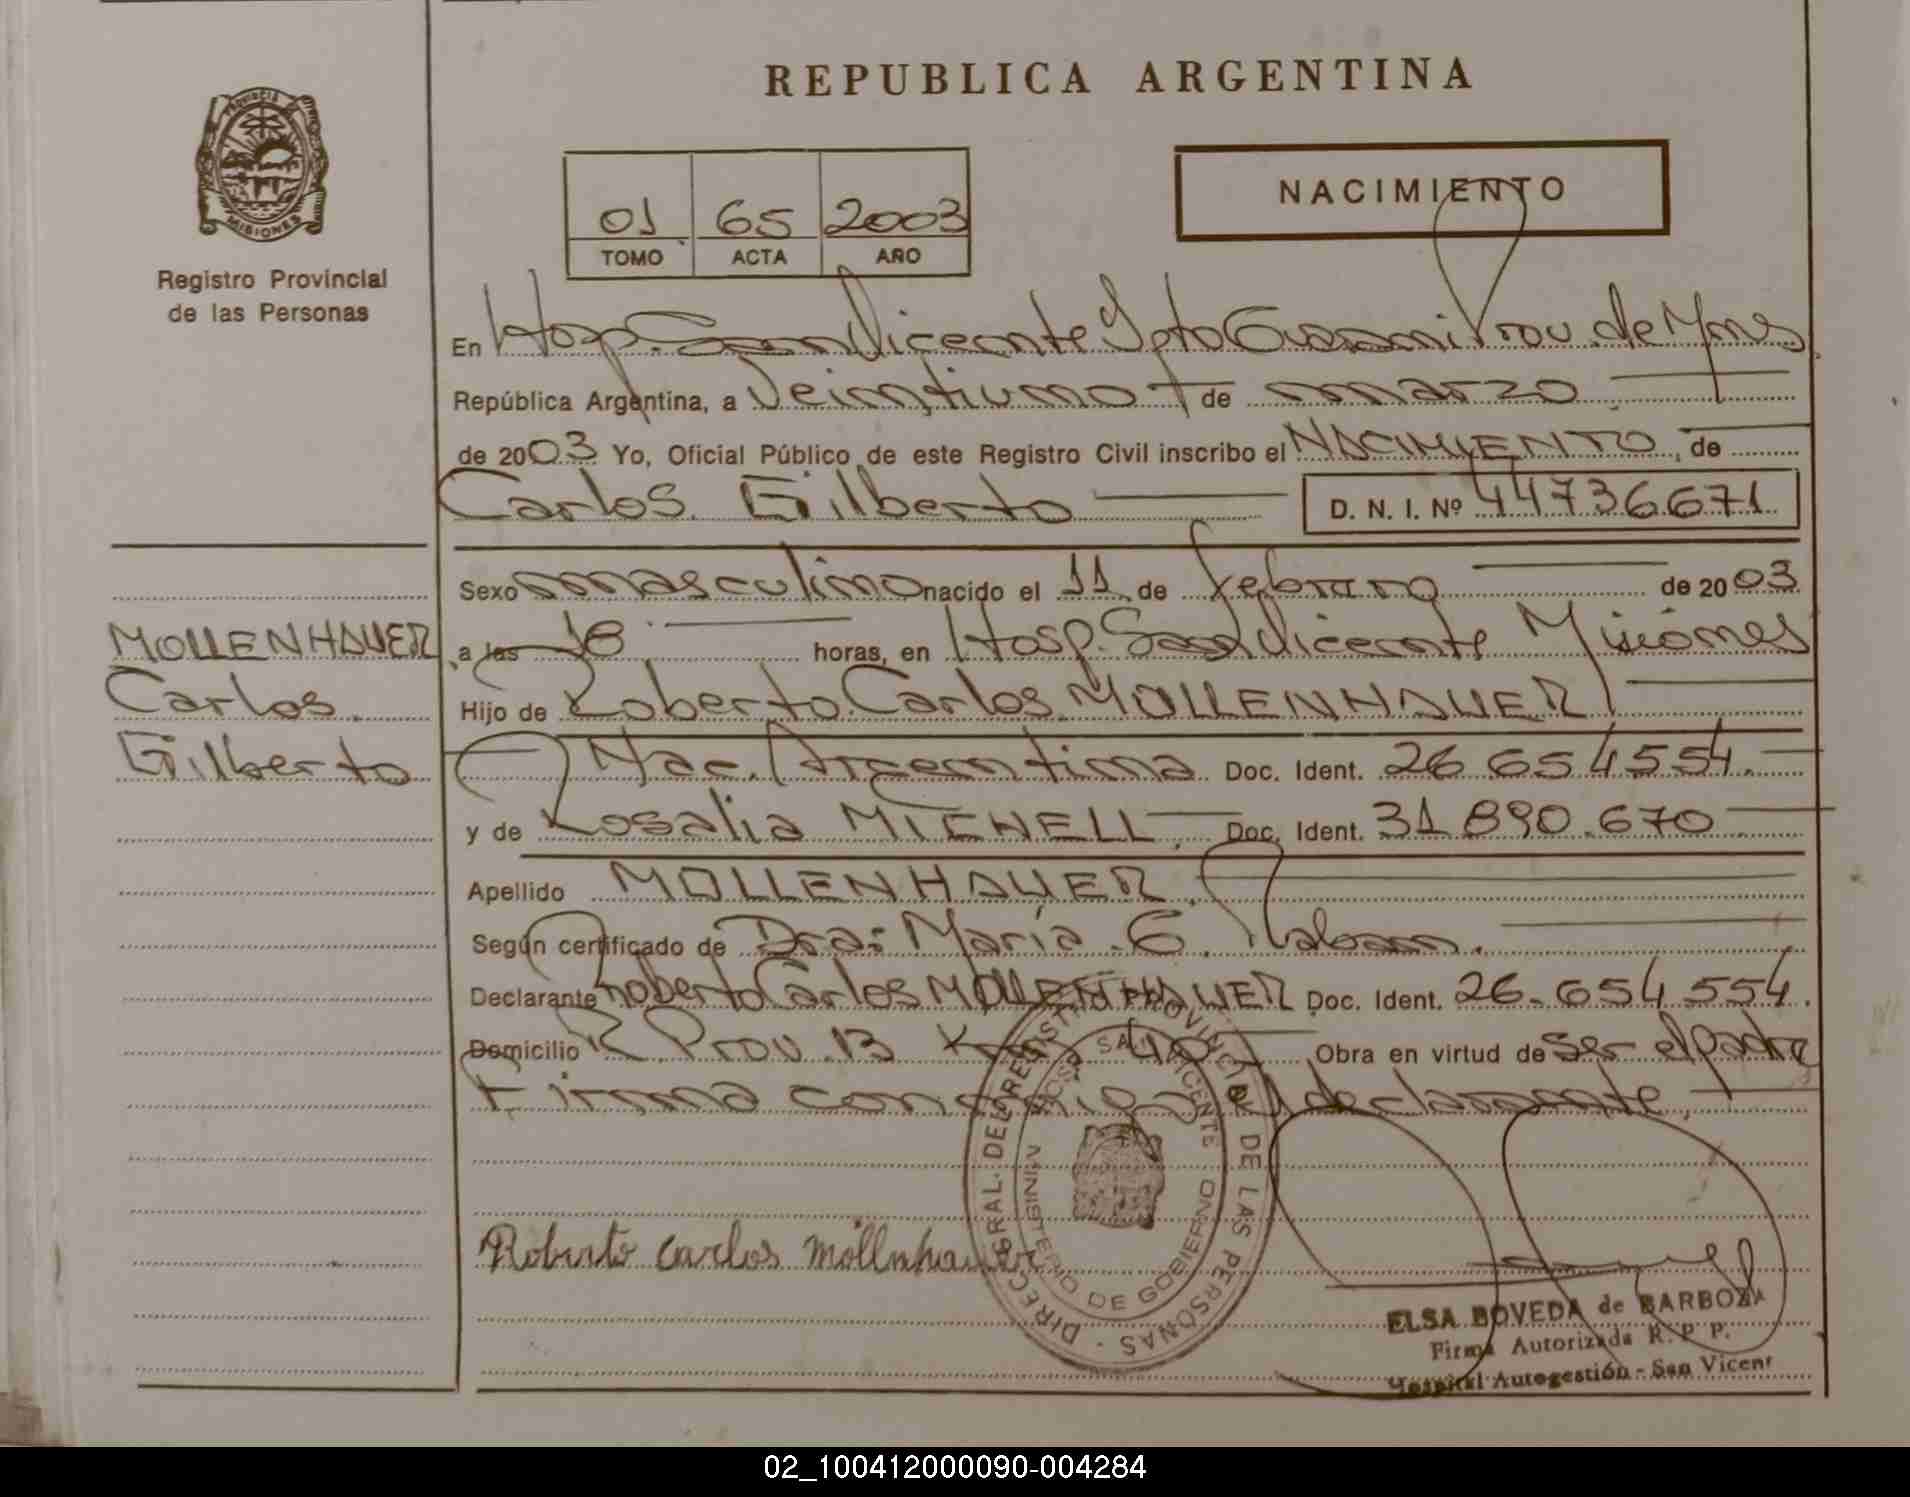 REPUBLICA ARGENTINA
PROVINCIA
MISIONES
Registro Provincial
de las Personas
01 65 2003
TOMO ACTA AÑO
NACIMIENTO
En Hosp. San Vicente Dpto Guaraní Prov. de Mnes
República Argentina, a Veintiuno de marzo
de 2003 Yo, Oficial Público de este Registro Civil inscribo el NACIMIENTO, de
Carlos Gilberto D. N. I. Nº 44736671
Sexo masculino nacido el 11 de febrero de 2003
a las 18 horas, en Hosp. San Vicente Misiones
Hijo de Roberto Carlos MOLLENHAUER
Nac. Argentina Doc. Ident. 26 654554.
y de Rosalia MICHELL Doc. Ident. 31 890.670
Apellido MOLLENHAUER
Según certificado de Dra: María E.
Declarante Roberto Carlos MOLLENHAUER Doc. Ident. 26.654.554.
Domicilio R. Prov. 13 Km 40 Obra en virtud de Ser el padre
Firma conmigo el declarante.
MOLLENHAUER
Carlos
Gilberto
Roberto Carlos Mollnhauer
DIREC. GRAL. DEL REGISTRO PROVINCIAL DE LAS PERSONAS
HOSP. SAN VICENTE
MINISTERIO DE GOBIERNO
ELSA BOVEDA de BARBOZA
Firma Autorizada R. P. P.
Hospital Autogestión - San Vicent
02_100412000090-004284